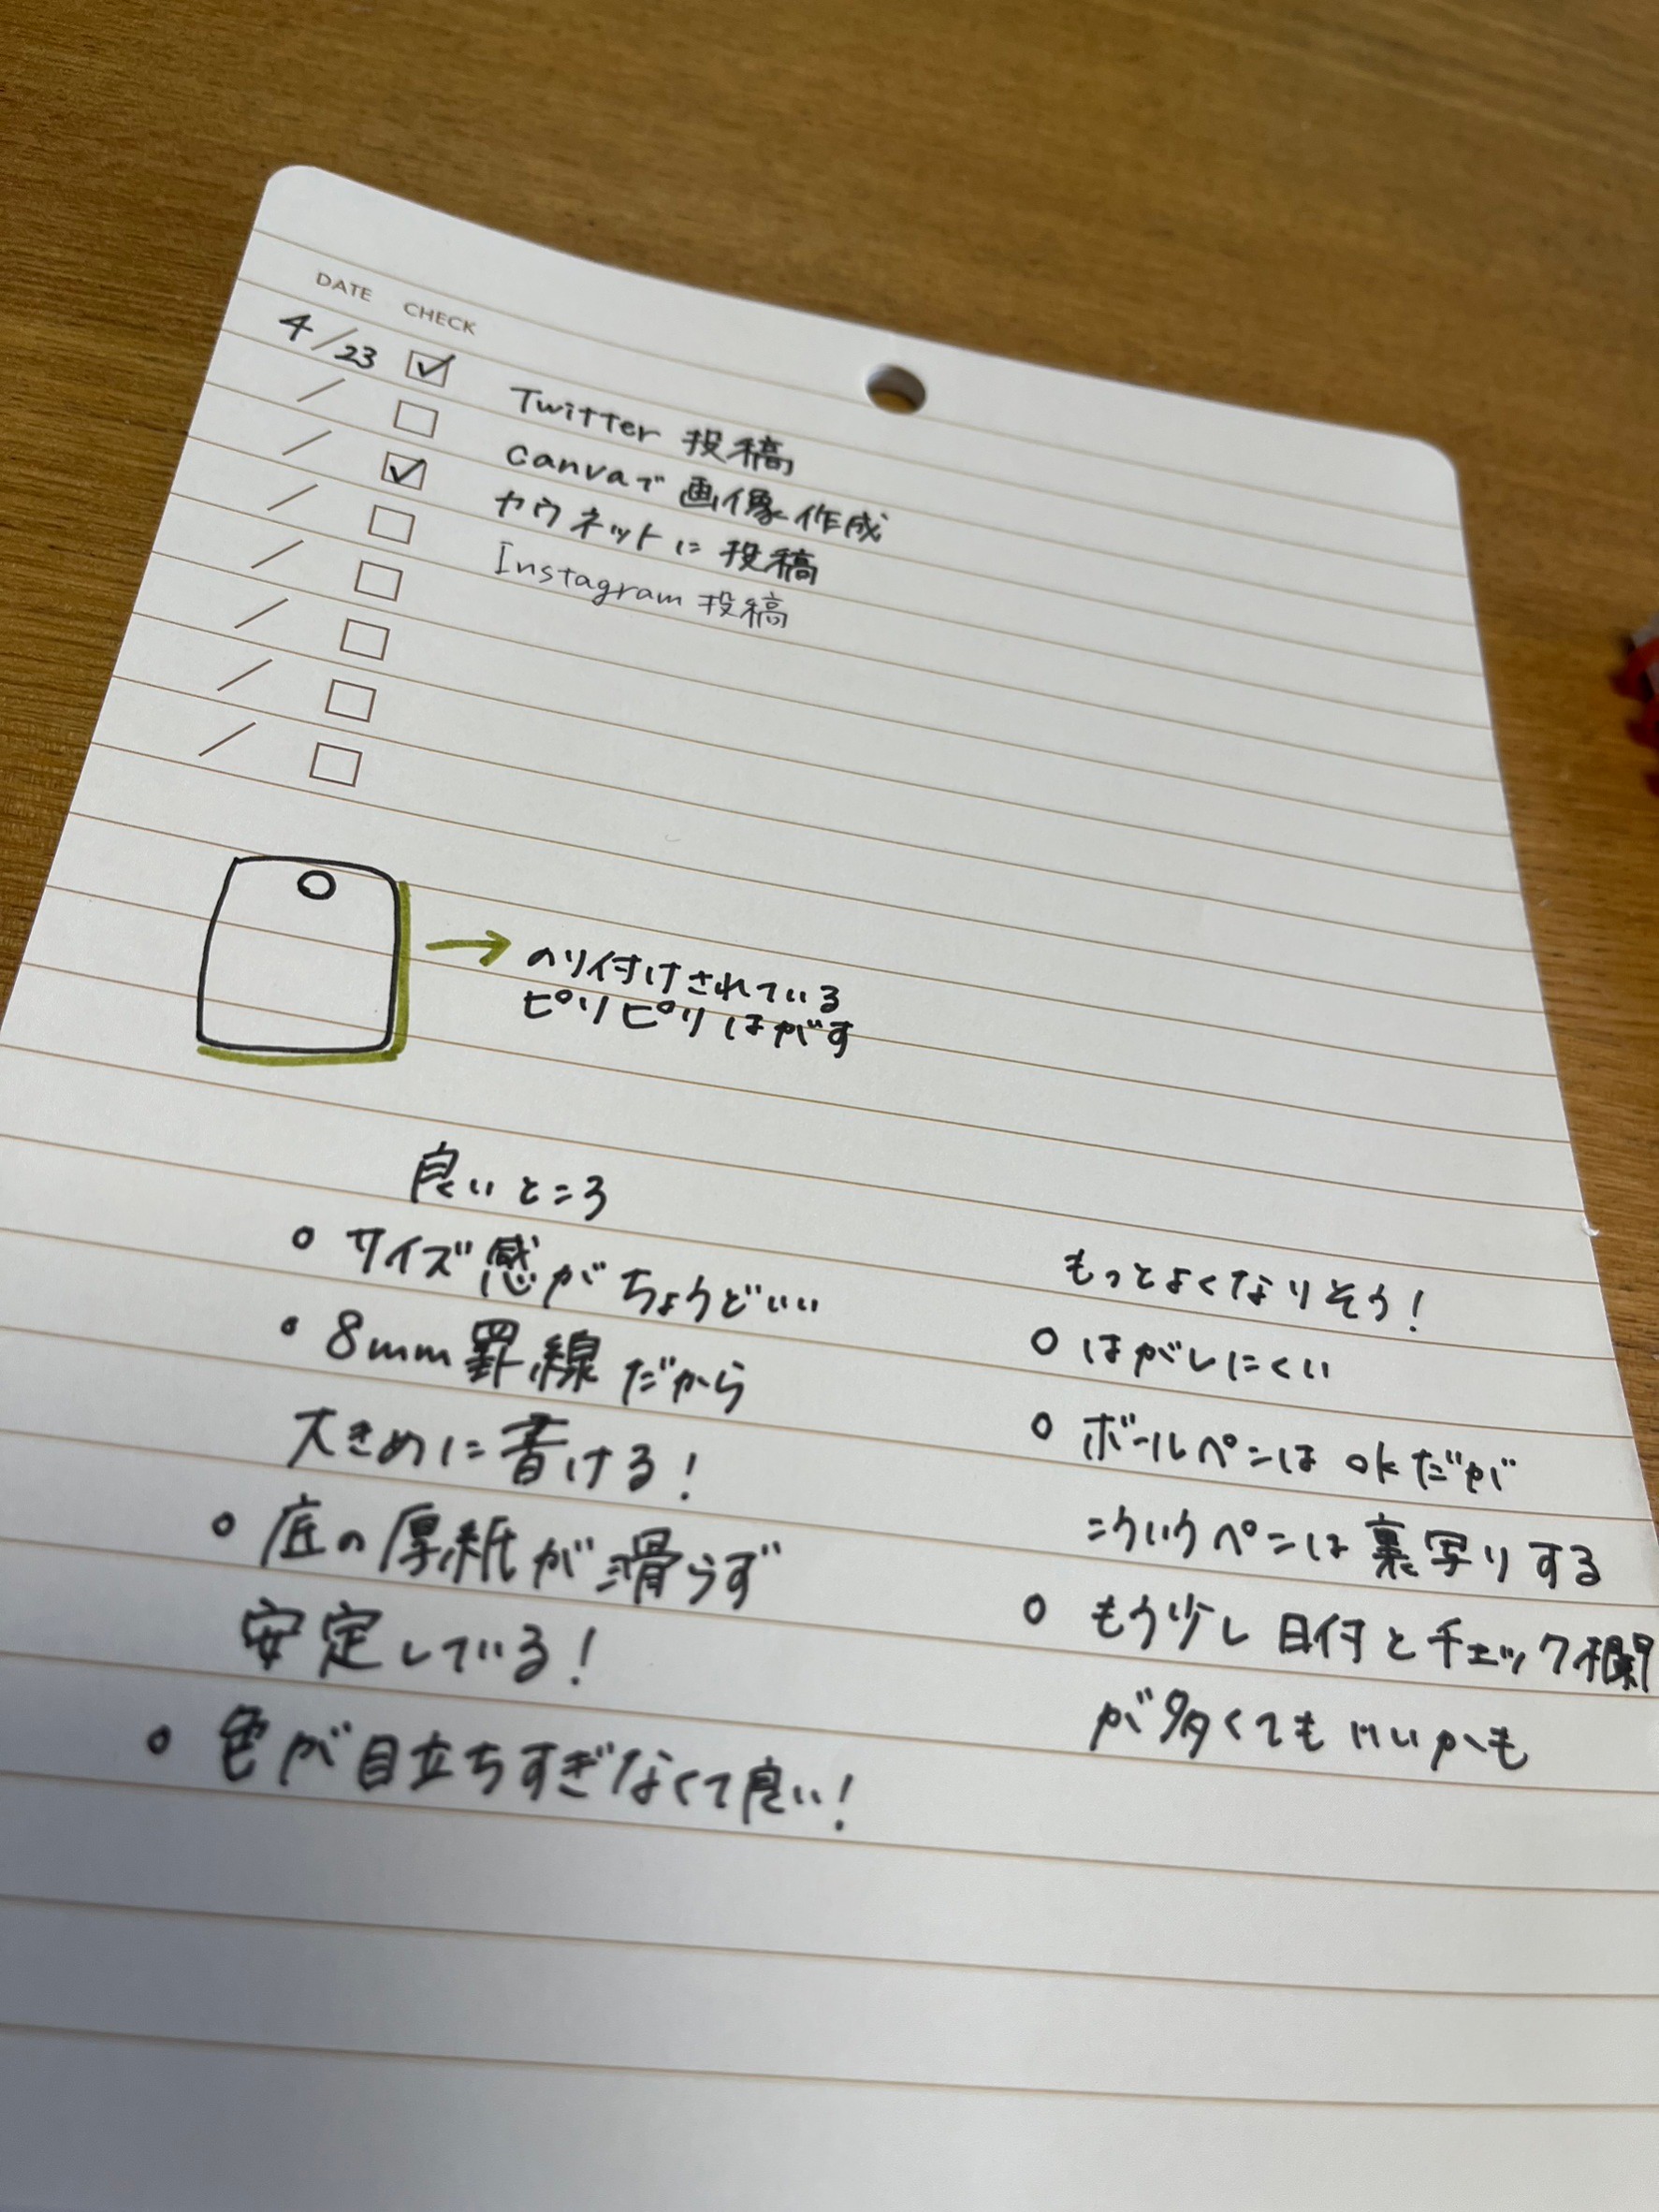 DATE CHECK
4/23 Twitter 投稿
/ Canvaで画像作成
/ カウネットに投稿
/ Instagram 投稿
/
/
/
/
のり付けされている
ピリピリはがす
良いところ
サイズ感がちょうどいい
8mm罫線だから
大きめに書ける!
底の厚紙が滑らず
安定している!
色が目立ちすぎなくて良い!
もっとよくなりそう!
はがしにくい
ボールペンはokだが
こういうペンは裏写りする
もう少し日付とチェック欄
が多くてもいいかも